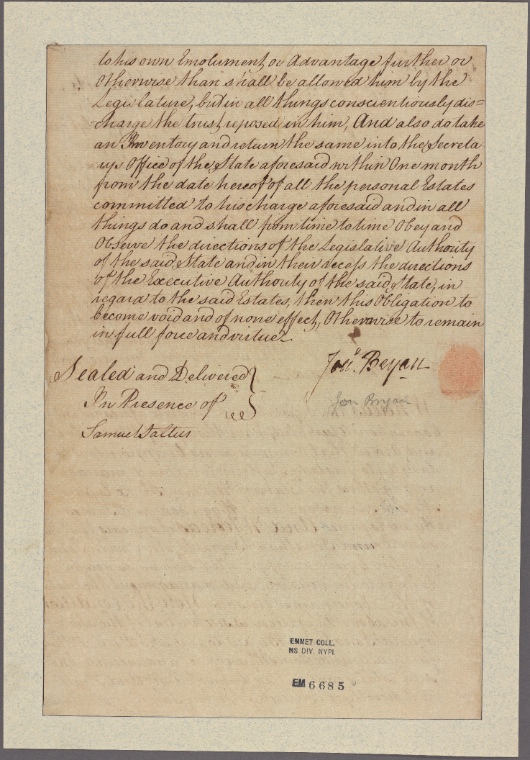 to his own Emolument, or Advantage further or
Otherwise than shall be allowed him by the
Legislature, but in all things conscientiously dis=
charge the trust reposed in him, And also do take
an Inventory and return the same into the Secreta
rys Office of the State aforesaid within One month
from the date hereof of all the personal Estates
committed to his charge aforesaid and in all
things do and shall from time to time Obey and
Observe the directions of the Legislative Authority
of the said State and in their recess the directions
of the Executive Authority of the said State, in
regard to the said Estates, then this Obligation to
become void and of none effect, Otherwise to remain
in full force and virtue.
Jon.ª Bryan
Sealed and Delivered
In Presence of
Jon Bryan
Samuel Saltus
EMMET COLL.
MS DIV. NYPL
EM 6685